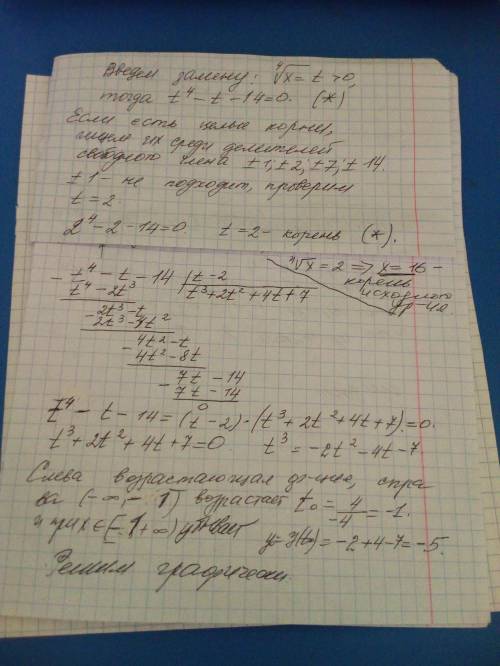 Введем замену: ⁴√x = t > 0,
тогда t⁴ - t - 14 = 0. (*)
Если есть целые корни,
ищем их среди делителей
свободного члена ±1; ±2; ±7; ±14.
±1 - не подходит, проверим
t = 2
2⁴ - 2 - 14 = 0. t = 2 - корень (*).
⁴√x = 2 => x = 16 -
корень
исходного
ур-ия
- t⁴ - t - 14 | t - 2
t⁴ - 2t³ | t³ + 2t² + 4t + 7
- 2t³ - t
2t³ - 4t²
- 4t² - t
4t² - 8t
- 7t - 14
7t - 14
0
t⁴ - t - 14 = (t - 2) · (t³ + 2t² + 4t + 7) = 0.
t³ + 2t² + 4t + 7 = 0 t³ = -2t² - 4t - 7
Слева возрастающая ф-ция, спра
ва (-∞; -1) возрастает t₀ = 4/-4 = -1.
и при x ∈ [-1; +∞) убывает
y = y(t₀) = -2 + 4 - 7 = -5.
Решим графически.